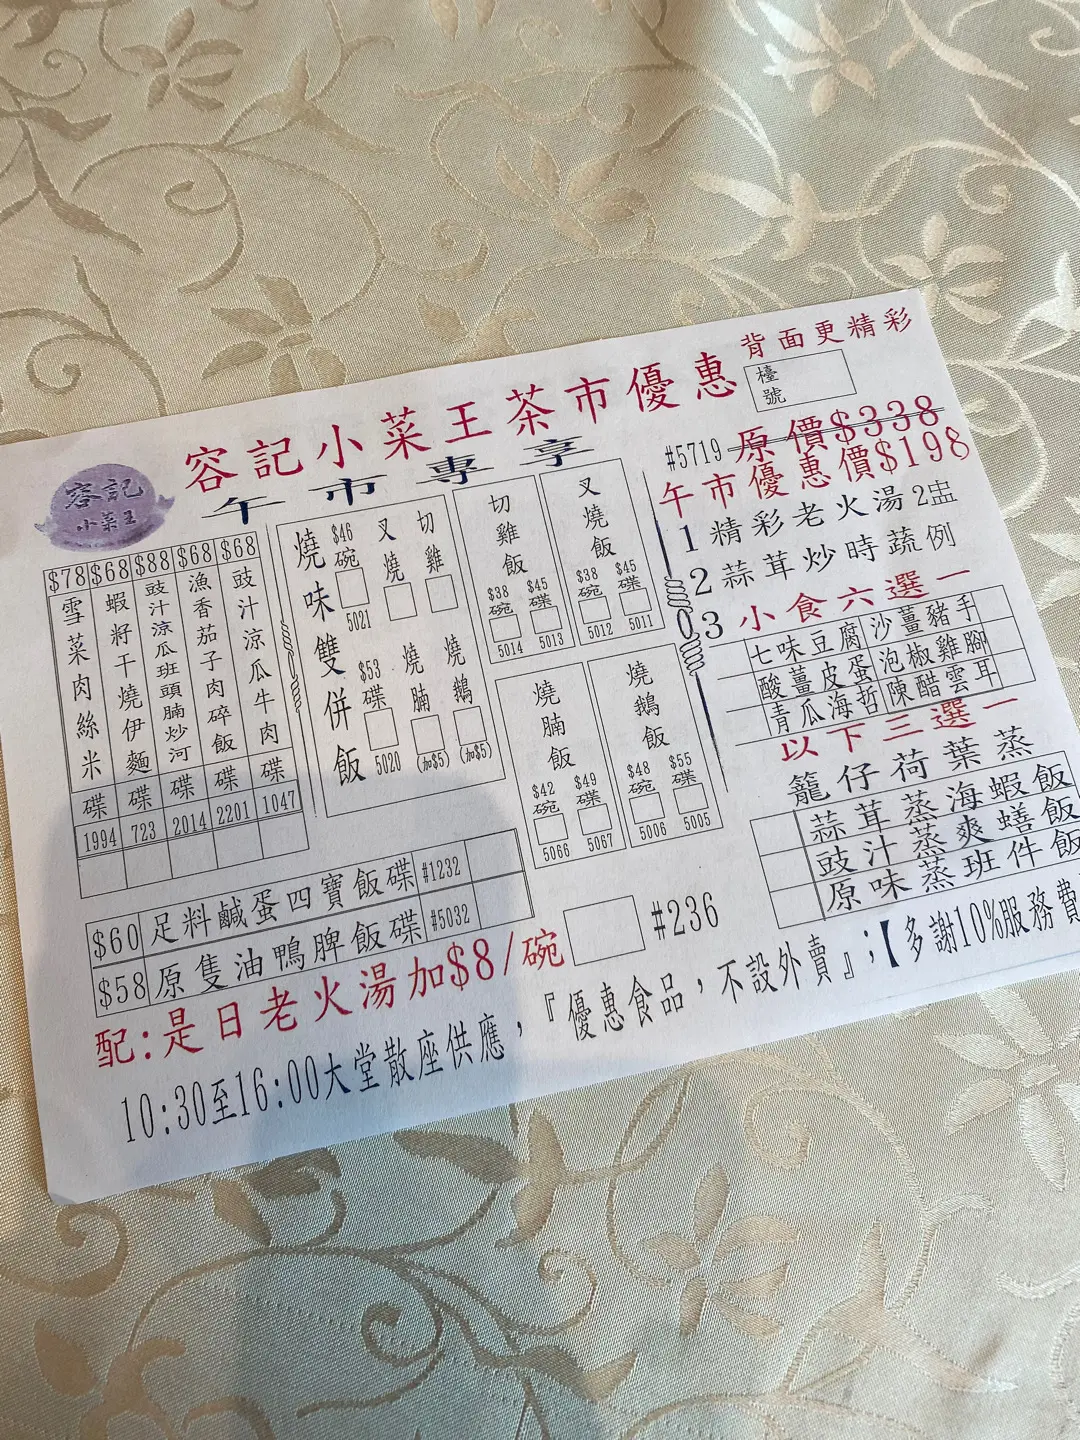 背面更精彩
容記小菜王茶市優惠
檯號
午市專享
容記
小菜王
$78 雪菜肉絲米 碟 1994
$68 蝦籽干燒伊麵 碟 723
$88 豉汁涼瓜班頭腩炒河 碟 2014
$68 漁香茄子肉碎飯 碟 2201
$68 豉汁涼瓜牛肉 碟 1047
燒味雙併飯
$46 碗 5021
$53 碟 5020
叉燒
切雞
燒腩 (加$5)
燒鵝 (加$5)
切雞飯
$38 碗 5014
$45 碟 5013
叉燒飯
$38 碗 5012
$45 碟 5011
燒腩飯
$42 碗 5066
$49 碟 5067
燒鵝飯
$48 碗 5006
$55 碟 5005
$60 足料鹹蛋四寶飯碟 #1232
$58 原隻油鴨脾飯碟 #5032
配:是日老火湯加$8/碗 #236
#5719 原價$338
午市優惠價$198
1 精彩老火湯2盅
2 蒜茸炒時蔬例
3 小食六選一
七味豆腐 沙薑豬手
酸薑皮蛋 泡椒雞腳
青瓜海哲 陳醋雲耳
以下三選一
籠仔荷葉蒸
蒜茸蒸海蝦飯
豉汁蒸爽蟮飯
原味蒸班件飯
10:30至16:00大堂散座供應，『優惠食品，不設外賣』;【多謝10%服務費